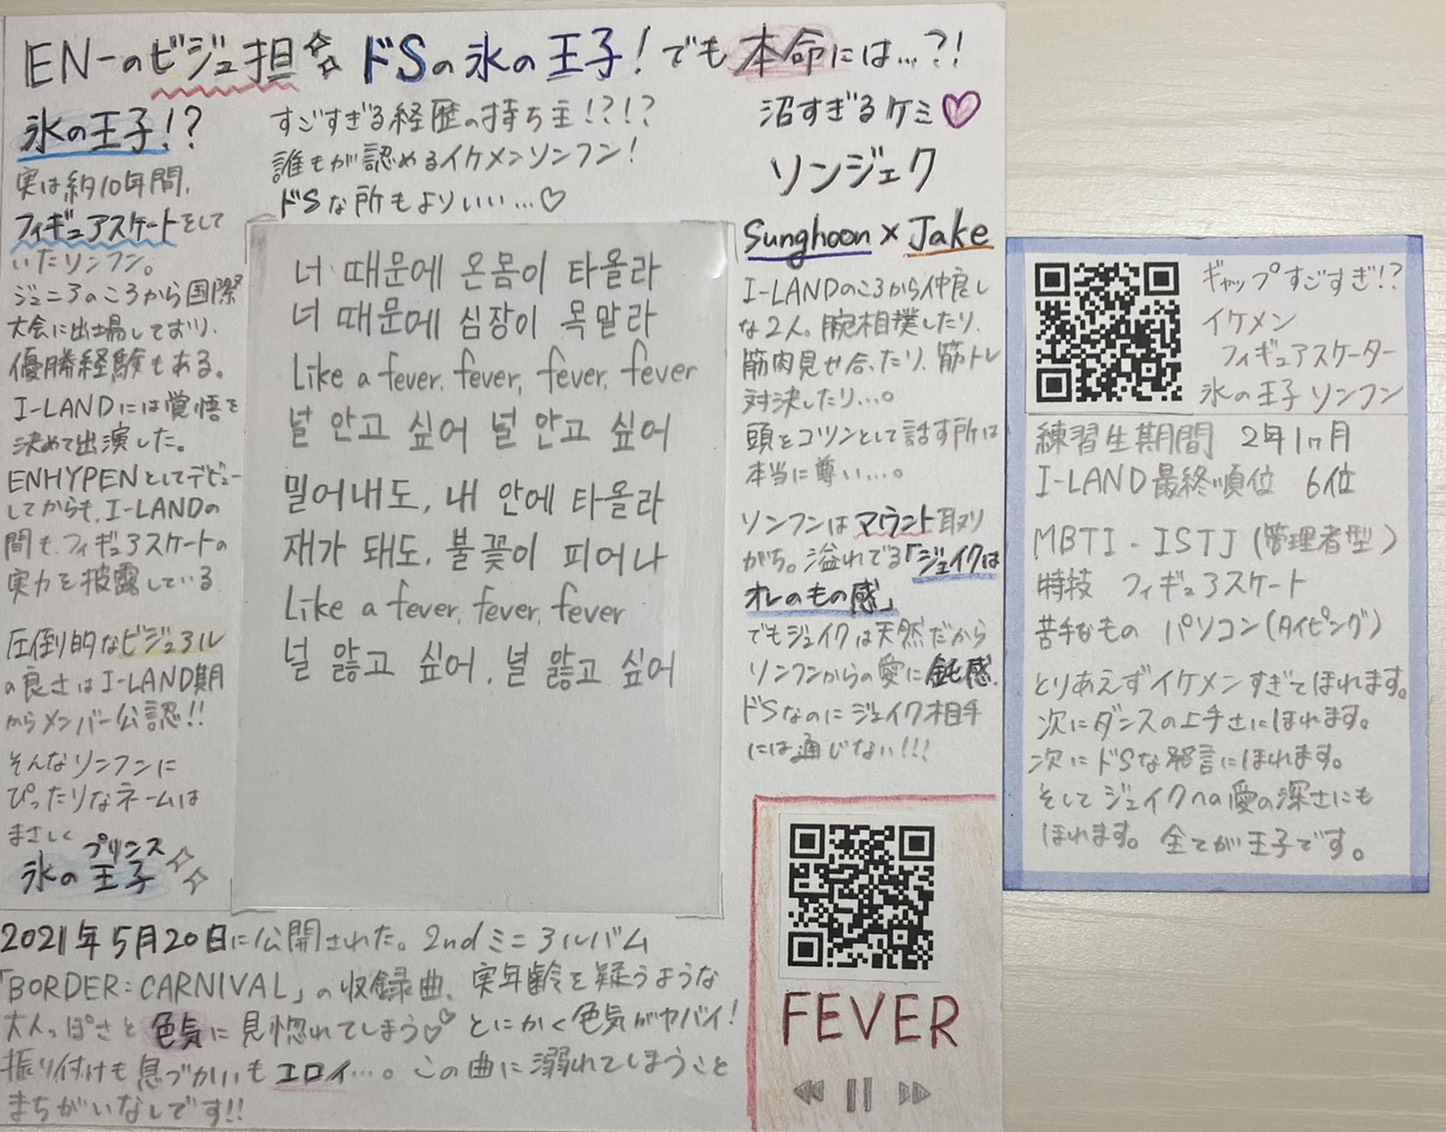 EN-のビジュ担 ドSの氷の王子！でも本命には…?!
氷の王子!?
実は約10年間、
フィギュアスケートをして
いたソンフン。
ジュニアのころから国際
大会に出場しており、
優勝経験もある。
I-LANDには覚悟を
決めて出演した。
ENHYPENとしてデビュー
してからも、I-LANDの
間も、フィギュアスケートの
実力を披露している
圧倒的なビジュアル
の良さはI-LAND期
からメンバー公認!!
そんなソンフンに
ぴったりなネームは
まさしく
プリンス
氷の王子
すごすぎる経歴の持ち主!?!?
誰もが認めるイケメンソンフン！
ドSな所もよりいい…♡
너 때문에 온몸이 타올라
너 때문에 심장이 목말라
Like a fever, fever, fever, fever
널 안고 싶어 널 안고 싶어
밀어내도, 내 안에 타올라
재가 돼도, 불꽃이 피어나
Like a fever, fever, fever
널 앓고 싶어, 널 앓고 싶어
沼すぎるケミ♡
ソンジェク
Sunghoon × Jake
I-LANDのころから仲良し
な2人。腕相撲したり、
筋肉見せ合ったり、筋トレ
対決したり…。
頭をコツンとして話す所は
本当に尊い…。
ソンフンはマウント取り
がち。溢れでる「ジェイクは
オレのもの感」
でもジェイクは天然だから
ソンフンからの愛に鈍感。
ドSなのにジェイク相手
には通じない!!!
2021年5月20日に公開された。2ndミニアルバム
「BORDER:CARNIVAL」の収録曲、実年齢を疑うような
大人っぽさと色気に見惚れてしまう♡♡とにかく色気がヤバイ！
振り付けも息づかいもエロイ…。この曲に溺れてしまうこと
まちがいなしです!!
FEVER
ギャップすごすぎ!?
イケメン
フィギュアスケーター
氷の王子 ソンフン
練習生期間 2年1ヶ月
I-LAND最終順位 6位
MBTI - ISTJ (管理者型)
特技 フィギュアスケート
苦手なもの パソコン(タイピング)
とりあえずイケメンすぎてほれます。
次にダンスの上手さにほれます。
次にドSな発言にほれます。
そしてジェイクへの愛の深さにも
ほれます。全てが王子です。